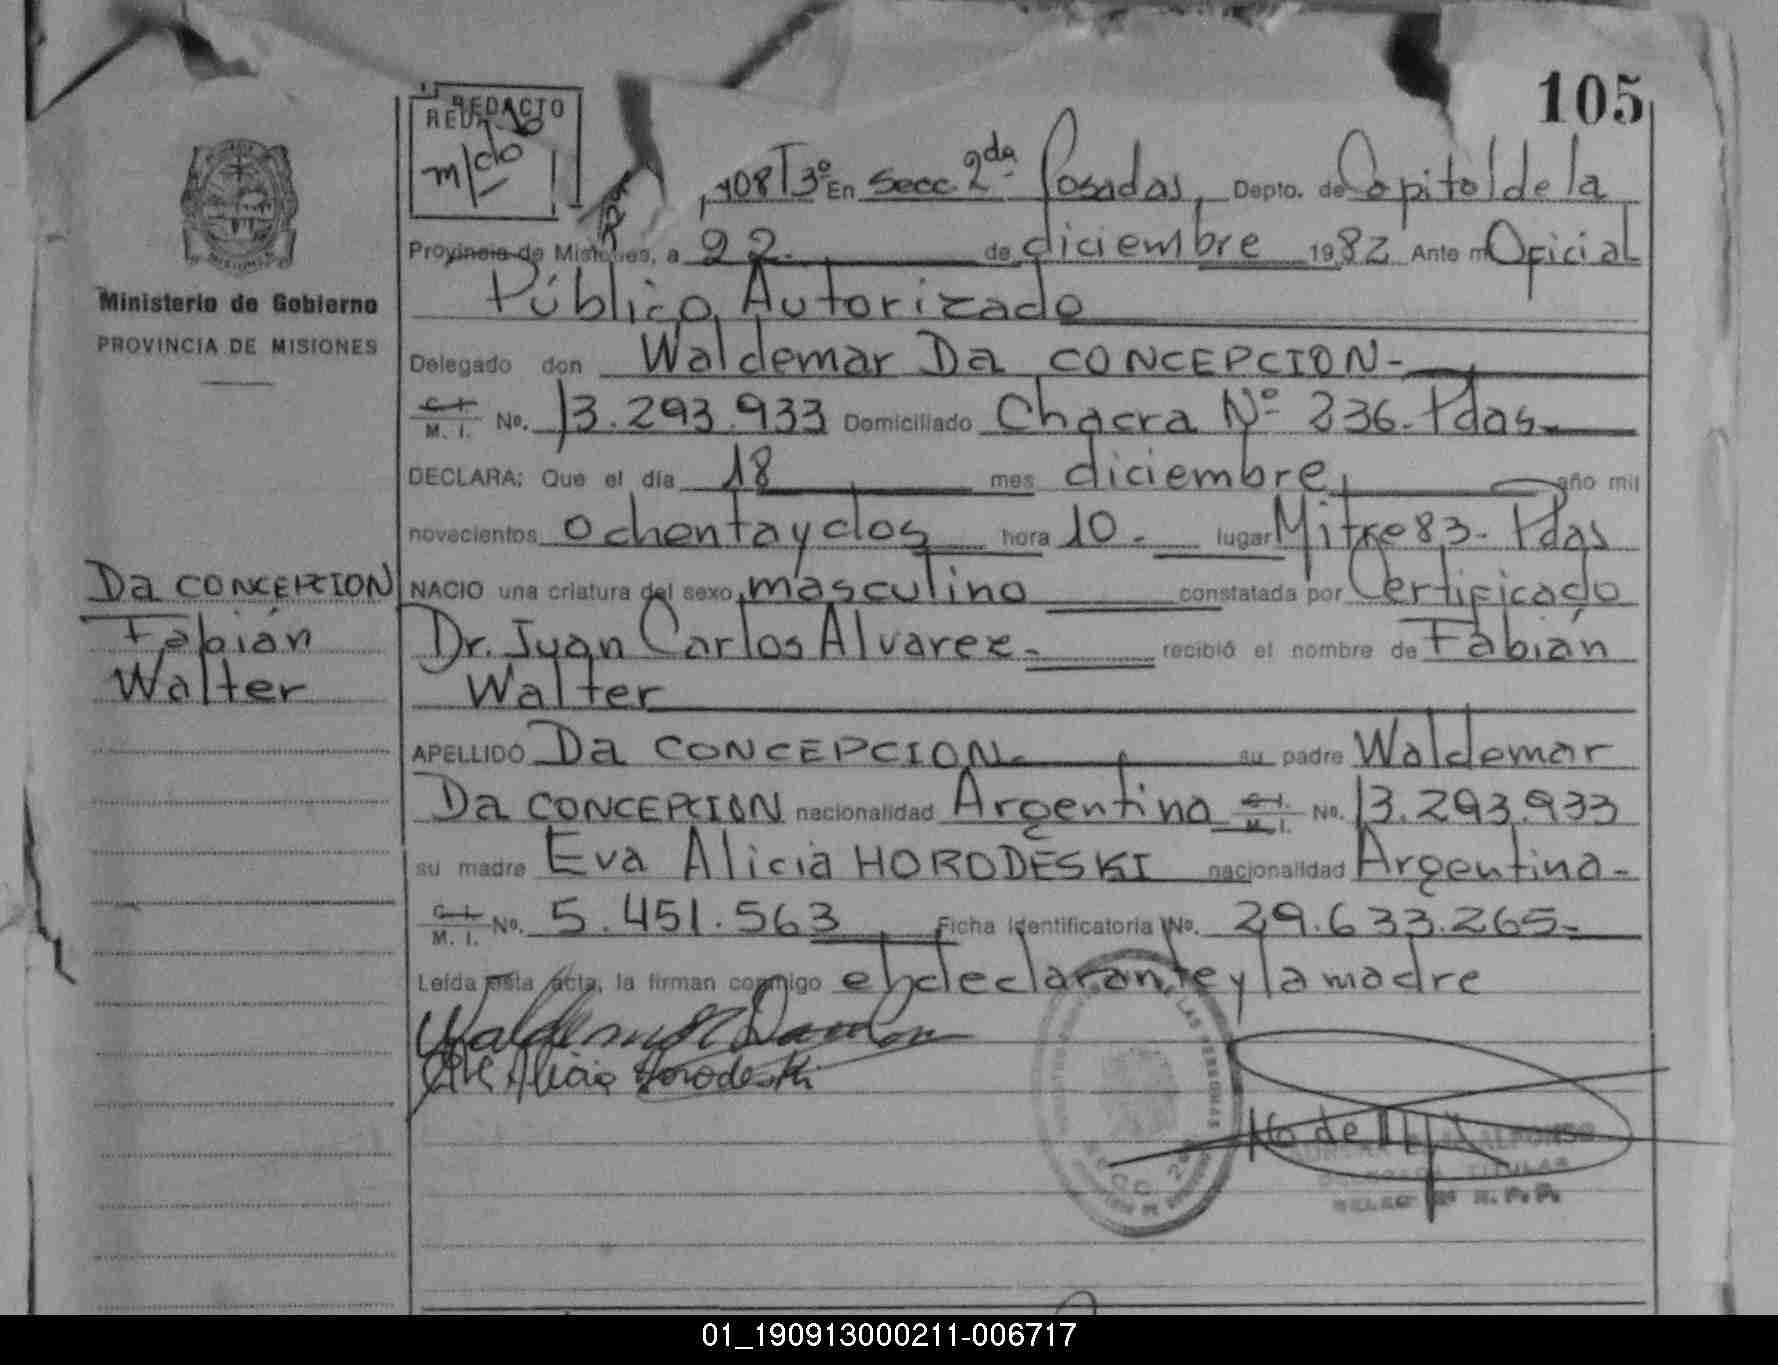 105
REDACTO
m/cdo
108 T3º En Secc. 2da Posadas, Depto. de Capital de la
Provincia de Misiones, a 22. de diciembre 1982 Ante mí Oficial
Público Autorizado
Ministerio de Gobierno
PROVINCIA DE MISIONES
Delegado don Waldemar Da CONCEPCION-
C.I. M. I. No. 13.293.933 Domiciliado Chacra Nº 236. Pdas.
DECLARA: Que el día 18 mes diciembre año mil
novecientos ochenta y dos hora 10. lugar Mitre 83- Pdas
Da CONCEPCION
Fabián
Walter
NACIO una criatura del sexo masculino constatada por Certificado
Dr. Juan Carlos Alvarez- recibió el nombre de Fabián
Walter
APELLIDO Da CONCEPCION. su padre Waldemar
Da CONCEPCION nacionalidad Argentina C.I. M. I. No. 13.293.933
su madre Eva Alicia HORODESKI nacionalidad Argentina-
C.I. M. I. No. 5.451.563 Ficha Identificatoria No. 29.633.265-
Leída esta acta, la firman conmigo el declarante y la madre
Eva Alicia Horodeski
LAS PERSONAS
ALFONSO
TITULAR
01_190913000211-006717